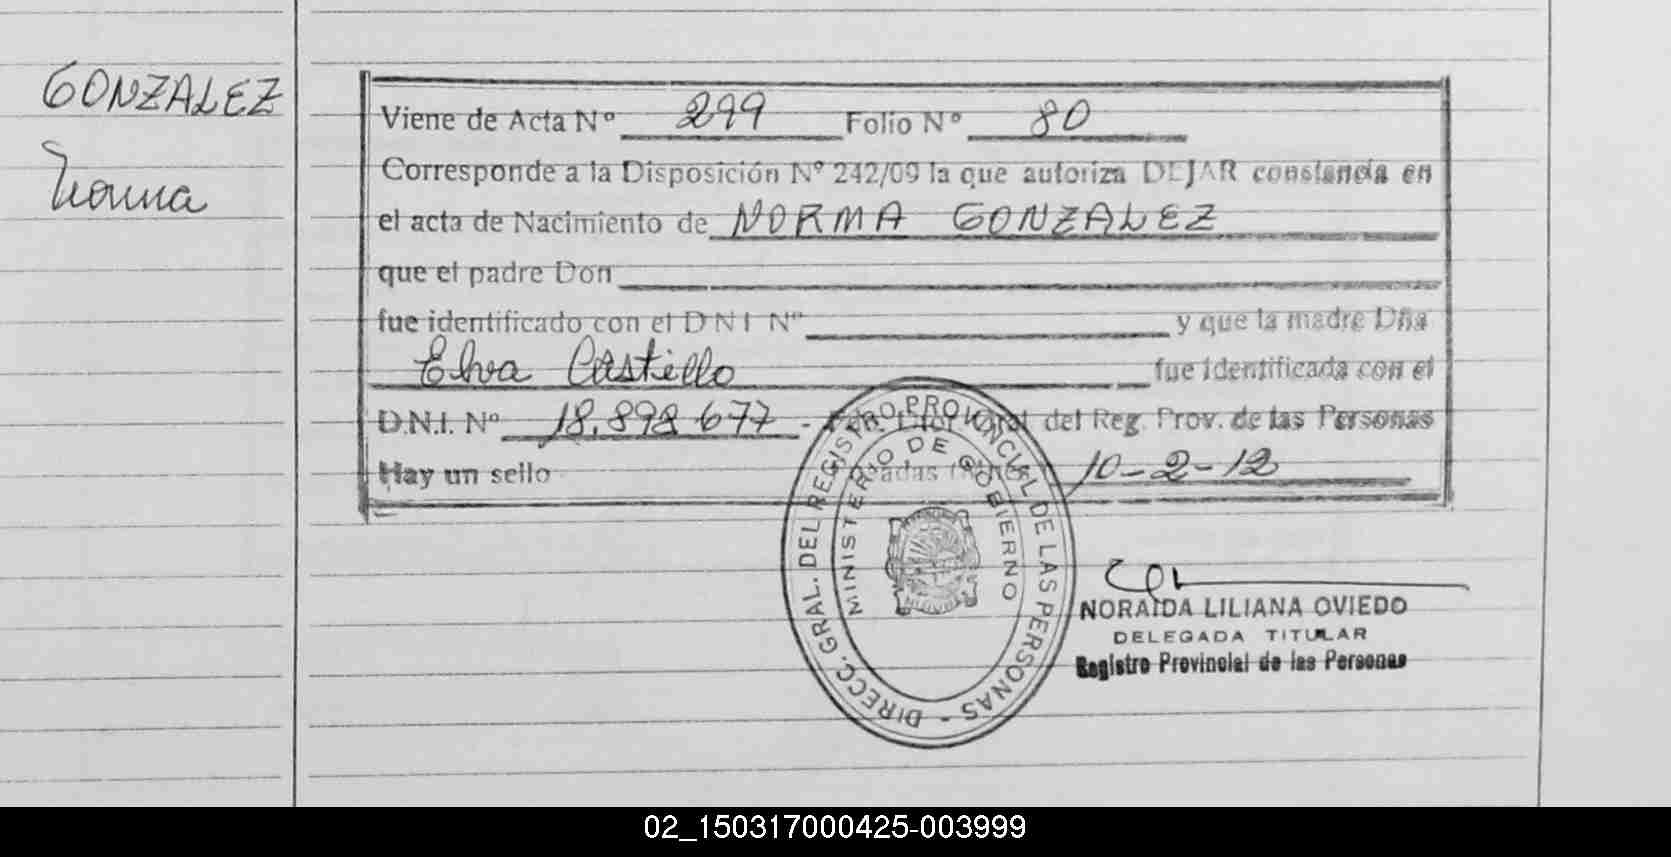 GONZALEZ
Norma
Viene de Acta Nº 299 Folio Nº 80
Corresponde a la Disposición Nº 242/09 la que autoriza DEJAR constancia en
el acta de Nacimiento de NORMA GONZALEZ
que el padre Don
fue identificado con el D N I Nº y que la madre Dña
Elva Castillo fue identificada con el
D.N.I. Nº 18.898.677 - Gral del Reg. Prov. de las Personas
Hay un sello 10-2-12
DIRECC. GRAL. DEL REGISTRO PROVINCIAL DE LAS PERSONAS -
MINISTERIO DE GOBIERNO
NORAIDA LILIANA OVIEDO
DELEGADA TITULAR
Registro Provincial de las Personas
02_150317000425-003999